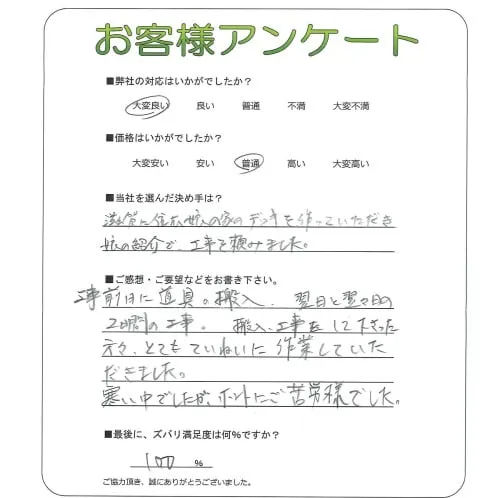 お客様アンケート
■弊社の対応はいかがでしたか?
大変良い 良い 普通 不満 大変不満
■価格はいかがでしたか?
大変安い 安い 普通 高い 大変高い
■当社を選んだ決め手は?
滋賀に住む娘の家のデッキを作っていただき
娘の紹介で、工事を頼みました。
■ご感想・ご要望などをお書き下さい。
工事前日に道具の搬入、翌日と翌々日の
2日間の工事。搬入、工事をして下さった
方々、とてもていねいに作業していた
だきました。
寒い中でしたが、ホントにご苦労様でした。
■最後に、ズバリ満足度は何%ですか?
100 %
ご協力頂き、誠にありがとうございました。